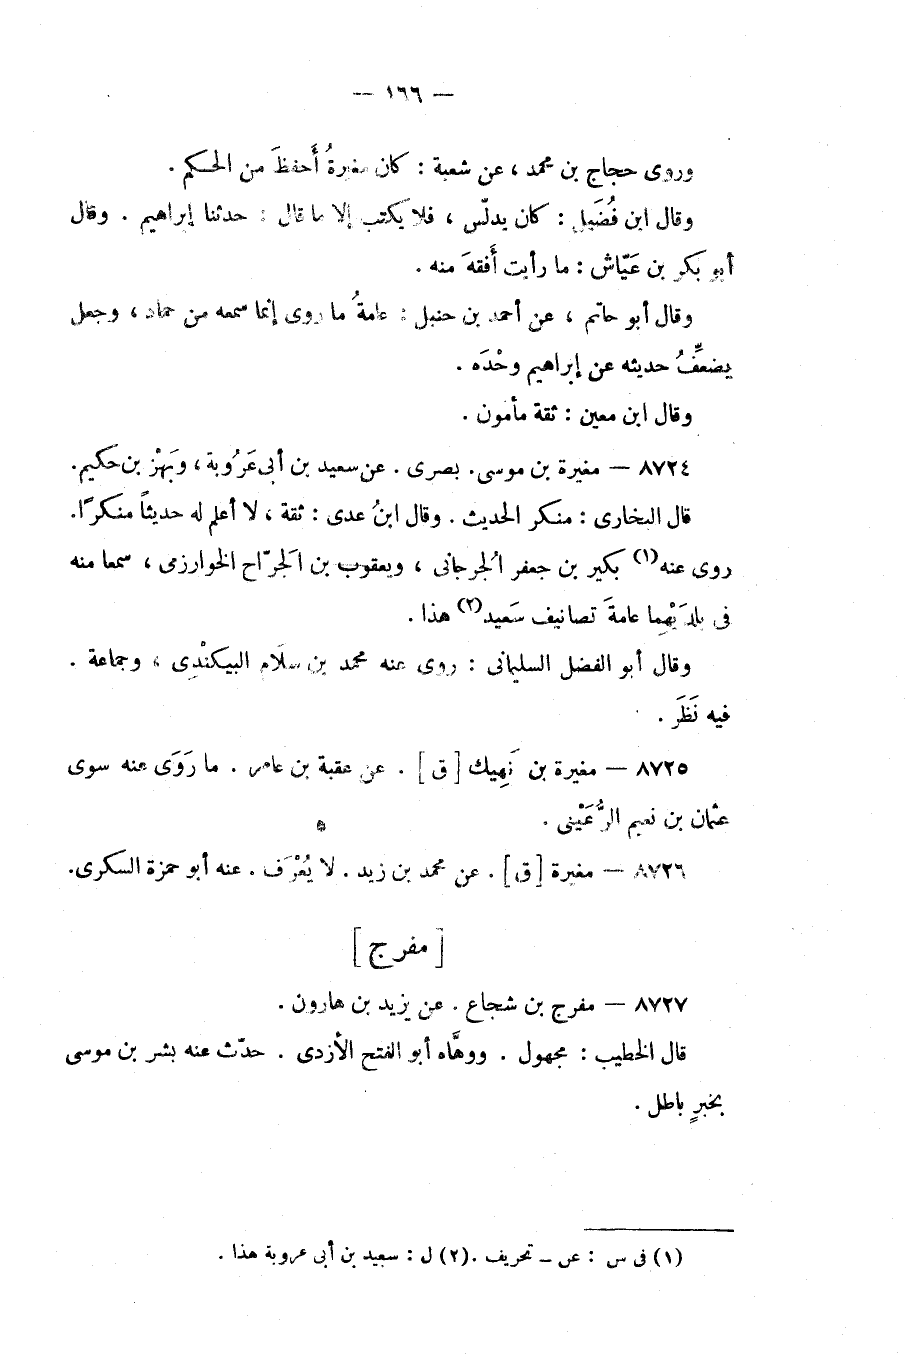 — ١٦٦ —
وروى حجاج بن محمد ، عن شعبة : كان مغيرةُ أَحفظَ من الحكم .
وقال ابن فُضَيل : كان يدلّس ، فلا يكتب إلا ما قال : حدثنا إبراهيم . وقال
أبو بكر بن عَيّاش : ما رأيت أَفقهَ منه .
وقال أبو حاتم ، عن أحمد بن حنبل : عامةُ ما روى إنما سمعه من حماد ، وجعل
يضعِّفُ حديثه عن إبراهيم وحْدَه .
وقال ابن معين : ثقة مأمون .
٨٧٢٤ — مغيرة بن موسى. بصرى . عن سعيد بن أبى عَرُوبة ، وبَهْز بن حكيم.
قال البخارى : منكر الحديث . وقال ابنُ عدى : ثقة ، لا أعلم له حديثاً منكرًا.
روى عنه(١) بكير بن جعفر الُجرجانى ، ويعقوب بن الَجرّاح الخوارزمى ، سمعا منه
فى بلدَيْهِما عامةَ تصانيف سَعيد(٢) هذا .
وقال أبو الفضل السليمانى : روى عنه محمد بن سلَام البيكنْدِى ، وجماعة .
فيه نَظَر .
٨٧٢٥ — مغيرة بن نَهِيك [ ق ] . عن عقبة بن عامر . ما رَوَى عنه سوى
عثمان بن نعيم الرُّعَيْنى .
٨٧٢٦ — مغيرة [ ق ] . عن محمد بن زيد . لا يُعْرَف . عنه أبو حمزة السكرى.
[ مفرج ]
٨٧٢٧ — مفرج بن شجاع . عن يزيد بن هارون .
قال الخطيب : مجهول . ووهَّاه أبو الفتح الأزدى . حدّث عنه بشر بن موسى
بخبرٍ باطل .
(١) فى س : عن ــ تحريف . (٢) ل : سعيد بن أبى عروبة هذا .